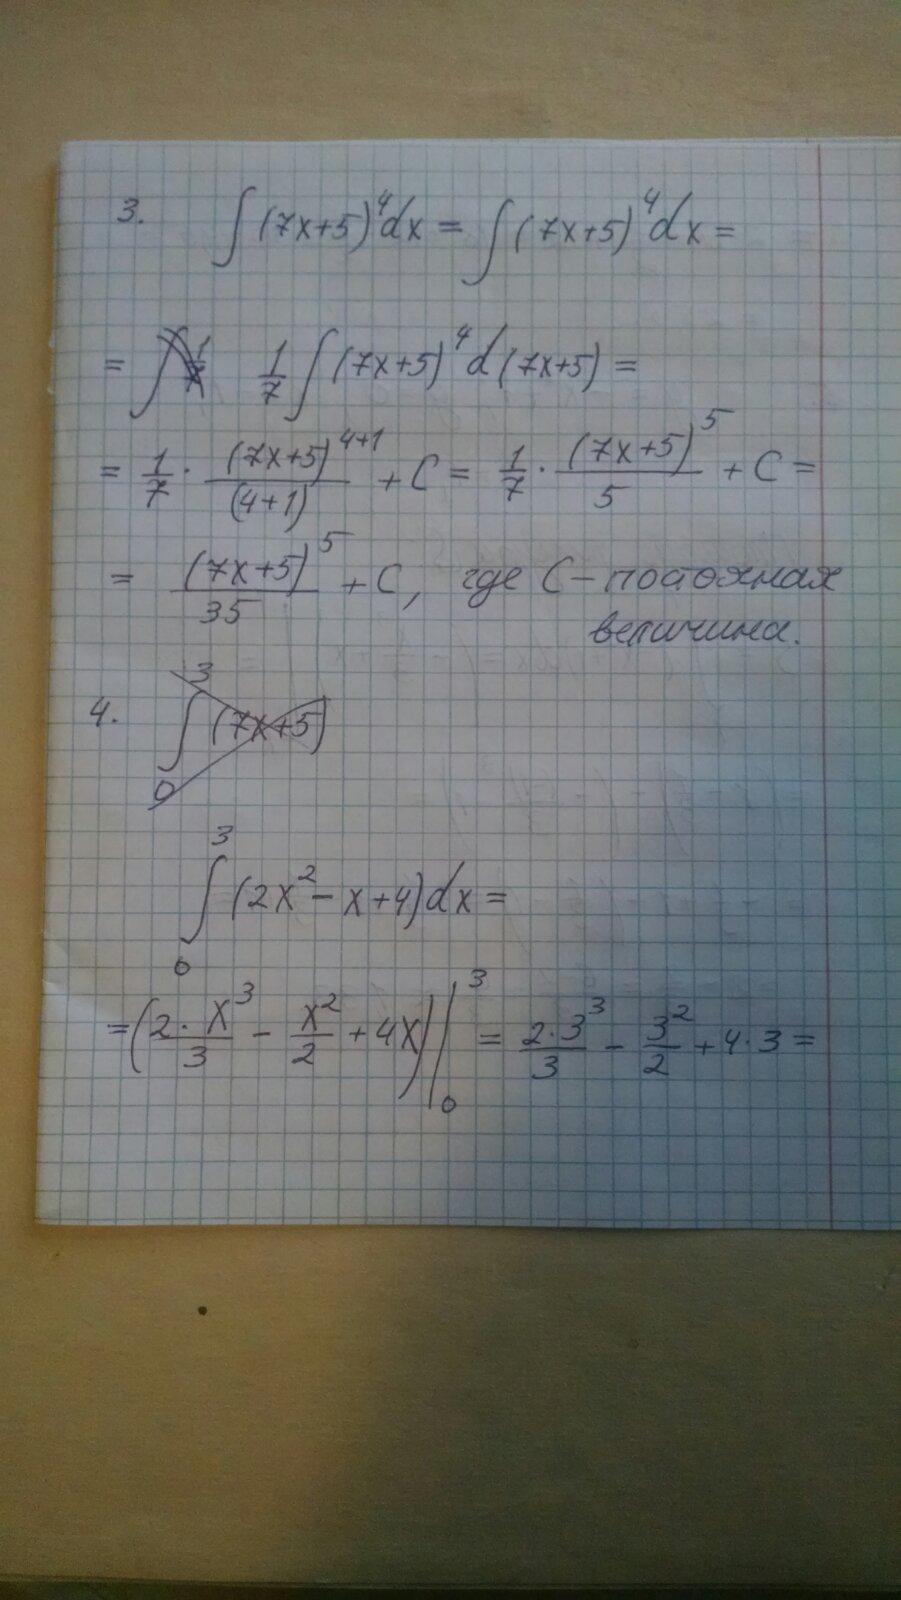 3. ∫(7x+5)⁴dx = ∫(7x+5)⁴dx =
= 1/7 ∫(7x+5)⁴d(7x+5) =
= 1/7 · (7x+5)⁴⁺¹/(4+1) + C = 1/7 · (7x+5)⁵/5 + C =
= (7x+5)⁵/35 + C, где C - постоянная
величина.
4. ∫₀³(7x+5)
∫₀³(2x² - x + 4)dx =
= (2·x³/3 - x²/2 + 4x)|₀³ = 2·3³/3 - 3²/2 + 4·3 =